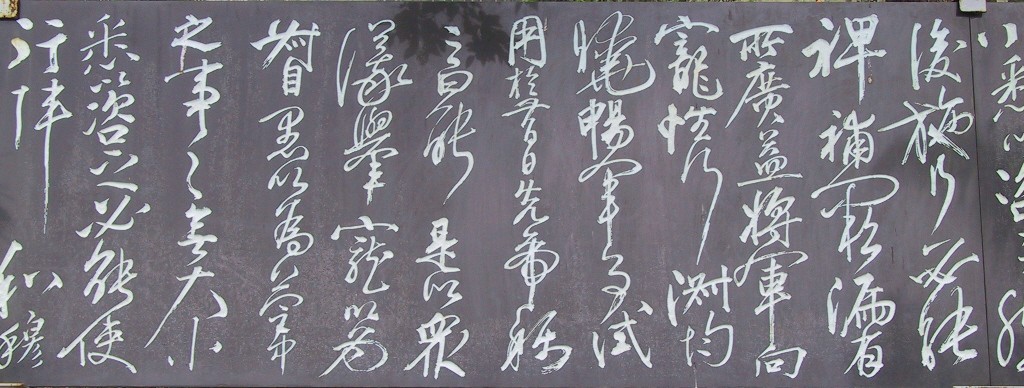 小悉以咨之然
後施行必能
裨補闕漏有
所廣益將軍向
寵性行淑均
曉暢軍事試
用於昔日先帝稱
之曰能是以眾
議舉寵以為
督愚以為營中
之事事無大小
悉咨之必能使
行陣和穆